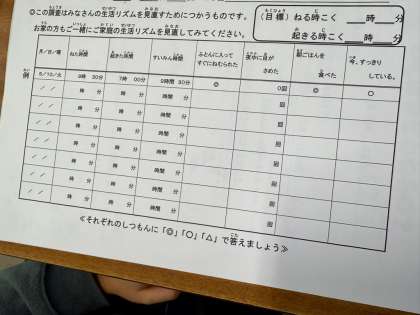 ◎この調査はみなさんの生活リズムを見直すためにつかうものです。
お家の方もご一緒にご家庭の生活リズムを見直してみてください。
（目標）ねる時こく 時 分
起きる時こく 時 分
月／日／曜 ねた時間 起きた時間 すいみん時間 ふとんに入ってすぐにねむられた 夜中に目がさめた 朝ごはんを食べた 今、すっきりしている。
例 9時 30分 7時 00分 9時間 30分 ◎ 0回 ◎ ○
／ ／ 時 分 時 分 時間 分 回
／ ／ 時 分 時 分 時間 分 回
／ ／ 時 分 時 分 時間 分 回
／ ／ 時 分 時 分 時間 分 回
／ ／ 時 分 時 分 時間 分 回
／ ／ 時 分 時 分 時間 分 回
／ ／ 時 分 時 分 時間 分 回
≪それぞれのしつもんに「◎」「○」「△」で答えましょう≫